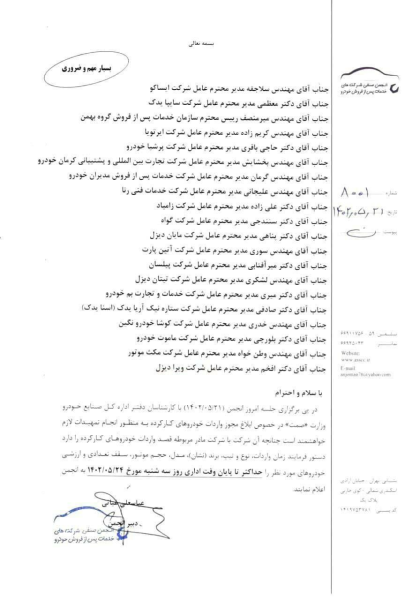 بسمه تعالی
بسیار مهم و ضروری
انجمن صنفی شرکت های
خدمات پس از فروش خودرو
جناب آقای مهندس سلاجقه مدیر محترم عامل شرکت ایساکو
جناب آقای دکتر معظمی مدیر محترم عامل شرکت سایپا یدک
جناب آقای مهندس میرمنصف رییس محترم سازمان خدمات پس از فروش گروه بهمن
جناب آقای مهندس کریم زاده مدیر محترم عامل شرکت ایرتویا
جناب آقای دکتر حاجی باقری مدیر محترم عامل شرکت پرشیا خودرو
جناب آقای مهندس بخشایش مدیر محترم عامل شرکت تجارت بین المللی و پشتیبانی کرمان خودرو
جناب آقای مهندس گرمان مدیر محترم عامل شرکت خدمات پس از فروش مدیران خودرو
جناب آقای مهندس علیجانی مدیر محترم عامل شرکت خدمات فنی رنا
جناب آقای دکتر علی زاده مدیر محترم عامل شرکت زامیاد
جناب آقای دکتر سنندجی مدیر محترم عامل شرکت گواه
جناب آقای دکتر پناهی مدیر محترم عامل شرکت مایان دیزل
جناب آقای مهندس سوری مدیر محترم عامل شرکت آتین پارت
جناب آقای دکتر میرآفتابی مدیر محترم عامل شرکت پیلسان
جناب آقای مهندس لشگری مدیر محترم عامل شرکت تیتان دیزل
جناب آقای دکتر میری مدیر محترم عامل شرکت خدمات و تجارت بم خودرو
جناب آقای دکتر صادقی مدیر محترم عامل شرکت ستاره نیک آریا یدک (آسنا یدک)
جناب آقای مهندس خدری مدیر محترم عامل شرکت کوشا خودرو نگین
جناب آقای دکتر بلورچی مدیر محترم عامل شرکت ماموت خودرو
جناب آقای مهندس وطن خواه مدیر محترم عامل شرکت مکث موتور
جناب آقای دکتر افخم مدیر محترم عامل شرکت ویرا دیزل
با سلام و احترام
در پی برگزاری جلسه امروز انجمن (۱۴۰۲/۰۵/۲۱) با کارشناسان دفتر اداره کل صنایع خودرو
وزارت «صمت» در خصوص ابلاغ مجوز واردات خودروهای کارکرده به منظور انجام تمهیدات لازم
خواهشمند است چنانچه آن شرکت یا شرکت مادر مربوطه قصد واردات خودروهای کارکرده را دارد
دستور فرمایند زمان واردات، نوع و تیپ، برند (نشان)، مدل، حجم موتور، سقف تعدادی و ارزشی
خودروهای مورد نظر را حداکثر تا پایان وقت اداری روز سه شنبه مورخ ۱۴۰۲/۰۵/۲۴ به انجمن
اعلام نمایند.
دبیر انجمن
انجمن صنفی شرکت های
خدمات پس از فروش خودرو
شماره
تاریخ
پیوست
Website:
E-mail